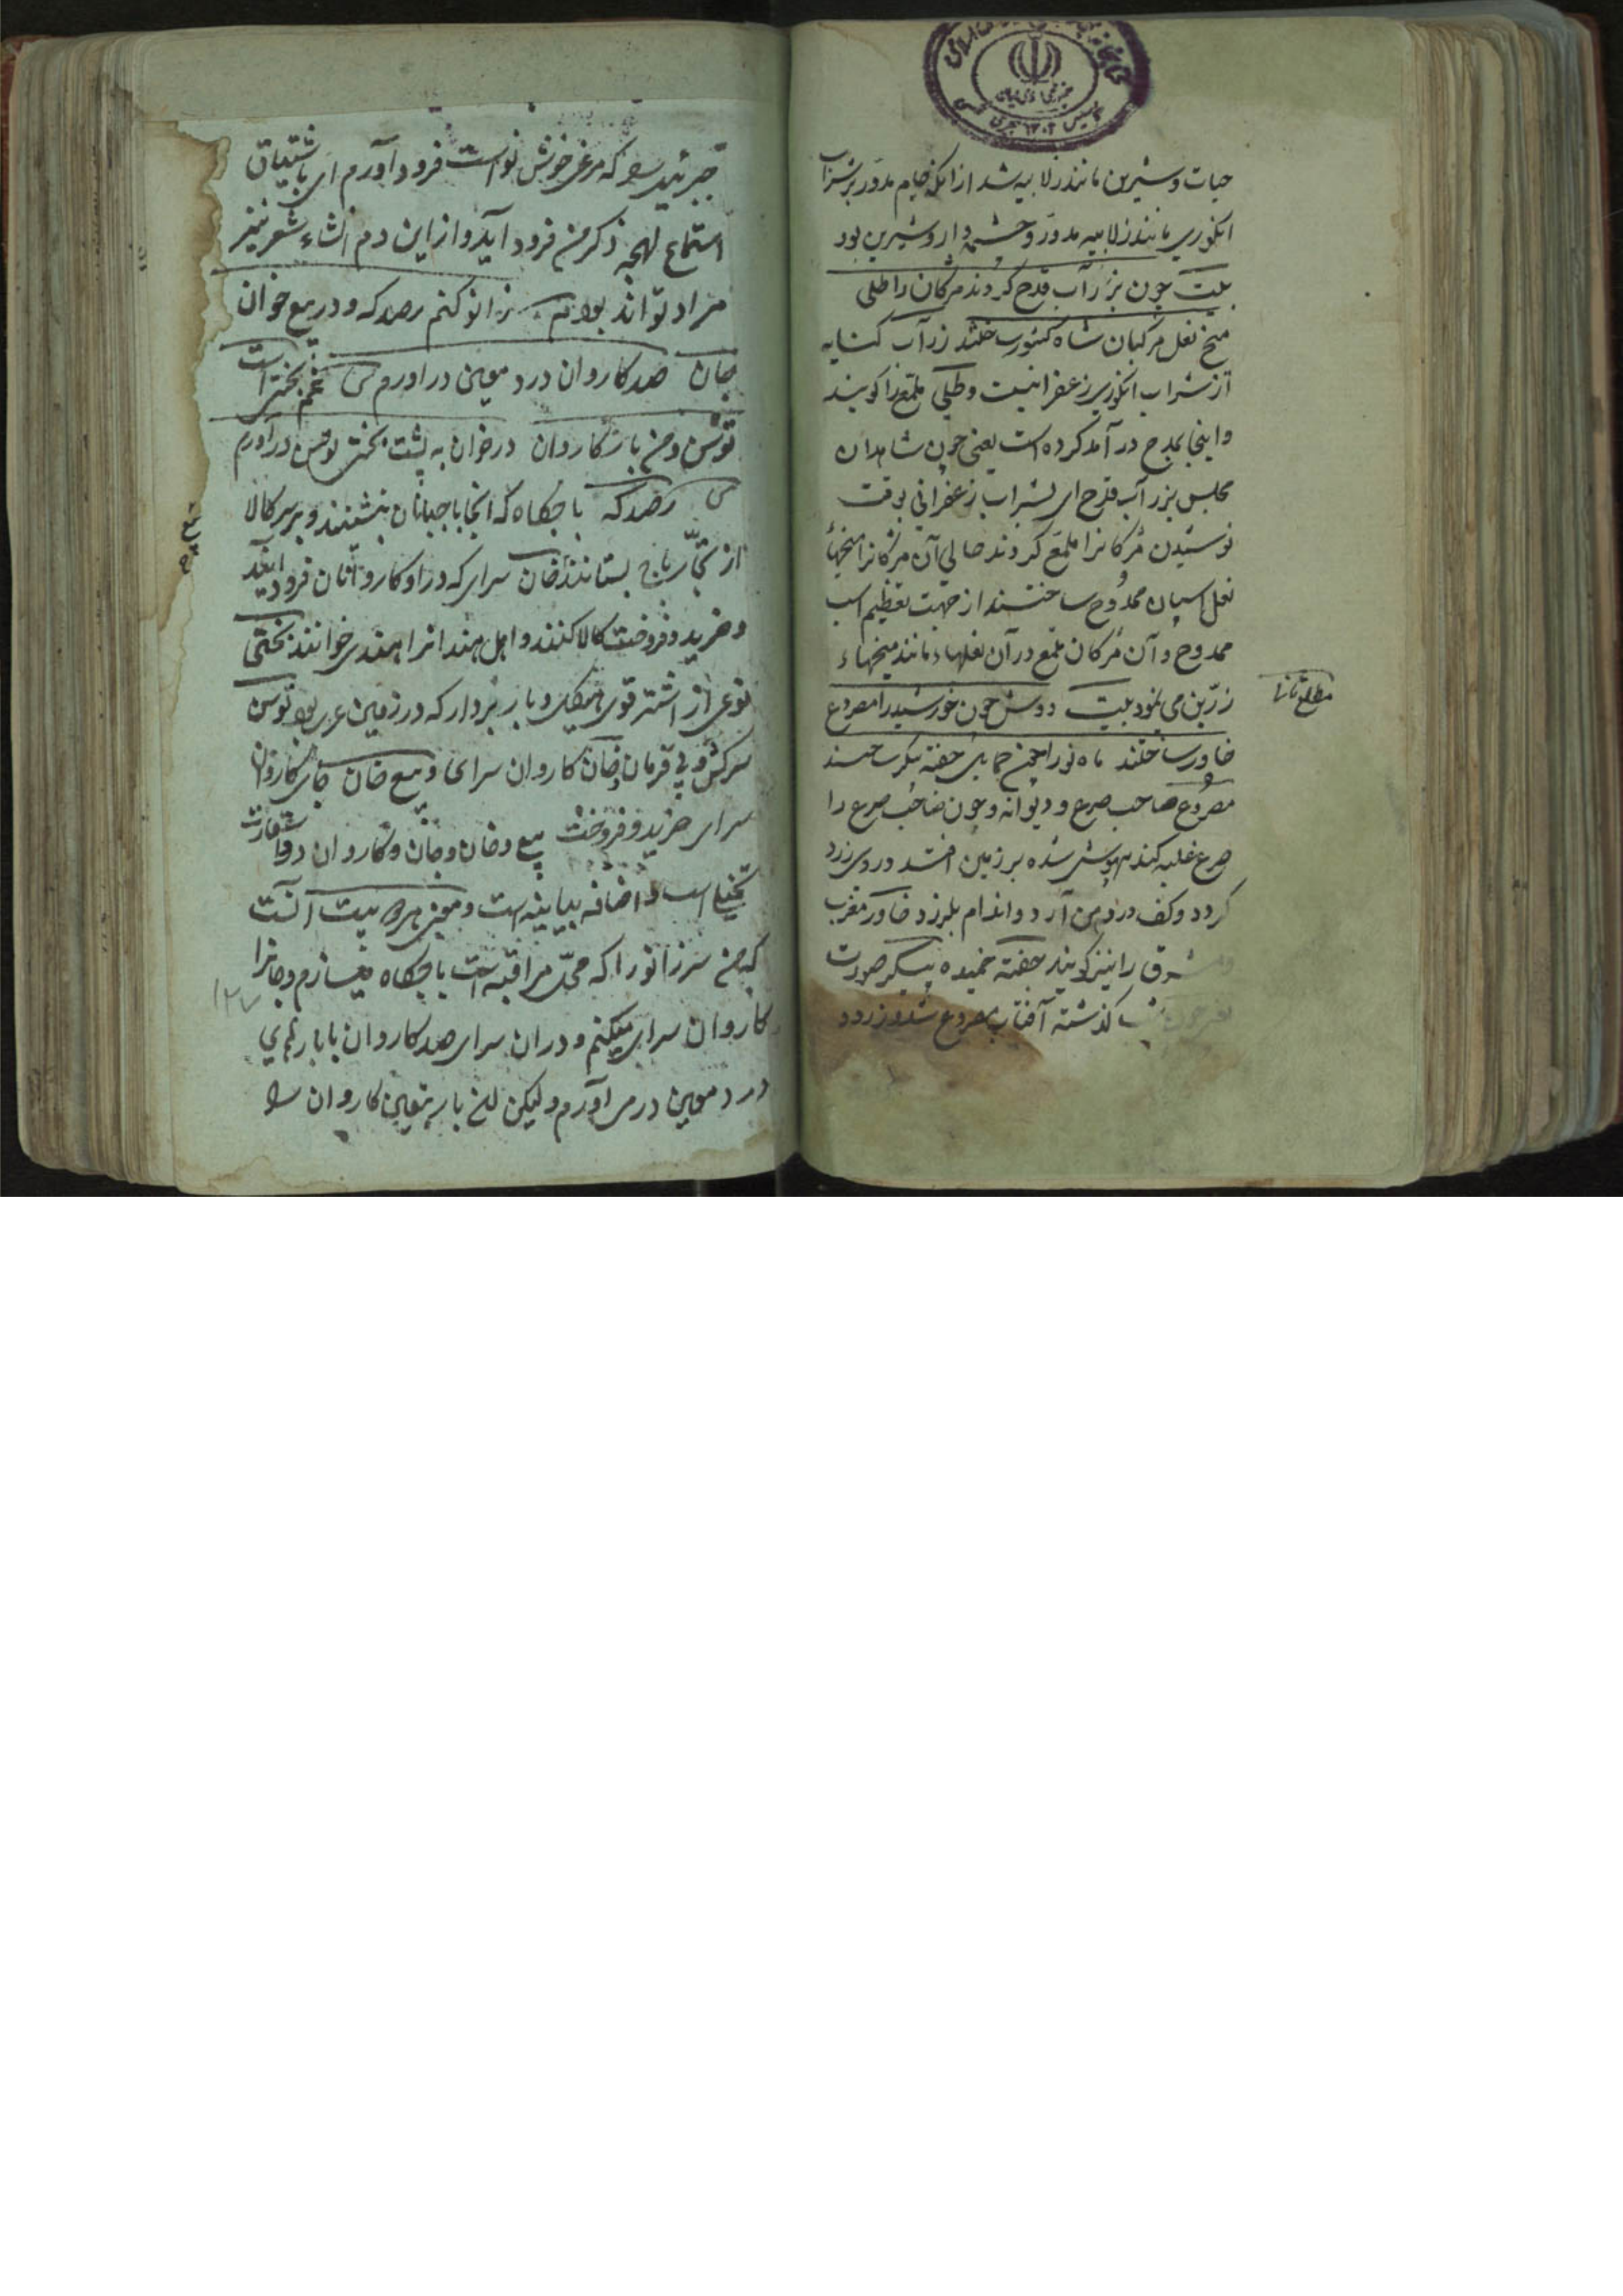 حیات و شیرین مانند زلابیه شد از آنکه جام مدور بر شراب
انکوری مانند زلابیه مدور و چشمه دار و شیرین بود
بیت چون بزر آب قدح کردند مژکان را طلی
میخ نعل مرکبان شاه کشور ساختند زر آب کنایه
از شراب انکوری زعفرانیست و طلی ملمع را کویند
و اینجا بمدح در آمد کرده است یعنی چون شاهدان
مجلس بزر آب قدح ای بشراب زعفرانی بوقت
نوشیدن مژکانرا ملمع کردند حالی آن مژکانرا میخهاء
نعل اسپان ممدوح ساختند از جهت تعظیم اسب
ممدوح و آن مژکان ملمع در آن نعلها مانند میخهاء
زرین می نمود بیت دوش چون خورشید را مصروع
مطلع ثانی
خاور ساختند ماه نو را چون حمایل جفته پیکر ساختند
مصروع صاحب صرع و دیوانه و چون صاحب صرع را
صرع غلبه کند بیهوش شده بر زمین افتد و روی زرد
کردد و کف در دهن آرد و اندام بلرزد خاور مغرب
و مشرق را نیز کویند جفته خمیده پیکر صورت
شب کذشته آفتاب مصروع شد و زرد
جبرئیل را که مرغ خوش نواست فرود آورم ای باشتیاق
استماع لهجه ذکر من فرود آید و از این دم انشاء شعر نیز
مراد تواند بود بیت زانو کنم رصدکه و در بیع خوان
جان صد کاروان درد معین در آورم غم بختی است
توسن و من باز کاروان در خوان به پشت بختی توسن در آورم
رصدکه باجکاه که انجا باجبانان بنشینند و بر سر کالا
از تجار باج بستانند خان سرای که در او کاروانان فرود آیند
و خرید و فروخت کالا کنند و اهل هند انرا هندی خوانند بختی
نوعی از اشتر قوی هیکل و بار بردار که در زمین عرب بود توسن
سرکش و بی فرمان و خان کاروان سرای و بیع خان جای کاروان
سرای خرید و فروخت بیع و خان و جان و کاروان دو استعارت
تخییل است و اضافه بیانیه است و معنی هر دو بیت آنست
که من سر زانو را که محل مراقبه است باجکاه میسازم و جانرا
کاروان سرای میکنم و در ان سرای صد کاروان با بارهای
درد معین در می آورم و لیکن این بار معین کاروان را
۱۲۷